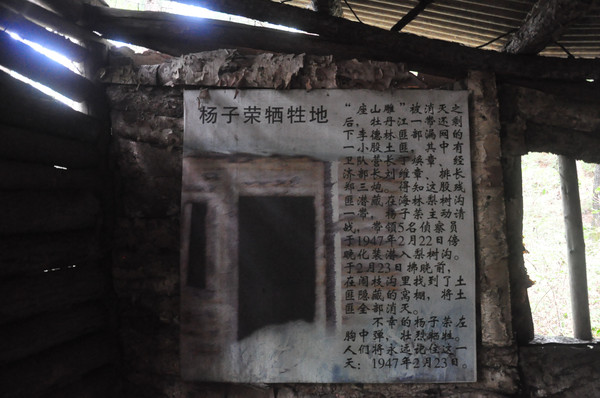 杨子荣牺牲地
“座山雕”被消灭之
后，牡丹江一部还剩
下李德林匪部漏网的
一小股土匪，其中有
卫队营长丁焕章、经
济部长刘维章、排长
郭三炮。得知这股残
匪潜藏在海林梨树沟
一带，杨子荣主动请
战，带领5名侦察员
于1947年2月22日傍
晚化装潜入梨树沟。
于2月23日拂晓前，
在闹枝沟里找到了土
匪隐藏的窝棚，将土
匪全部消灭。
不幸的杨子荣左
胸中弹，壮烈牺牲。
人们将永远记住这一
天：1947年2月23日。